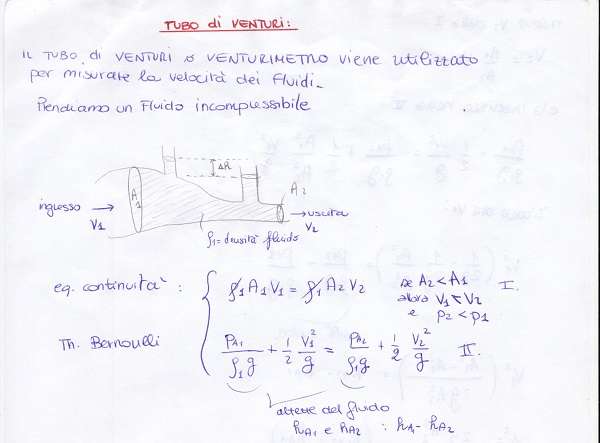 TUBO di VENTURI:
IL TUBO di VENTURI o VENTURIMETRO viene utilizzato
per misurare la velocità dei fluidi.
Prendiamo un fluido incomprimibile
Δh
A1
A2
ingresso →
V1
→ uscita
V2
ρ1 = densità fluido
eq. continuità : ρ1 A1 V1 = ρ1 A2 V2 se A2 < A1 I.
allora V1 < V2
e p2 < p1
Th. Bernoulli pA1/ρ1g + 1/2 V1²/g = pA2/ρ1g + 1/2 V2²/g II.
altezze del fluido
hA1 e hA2 : hA1 - hA2